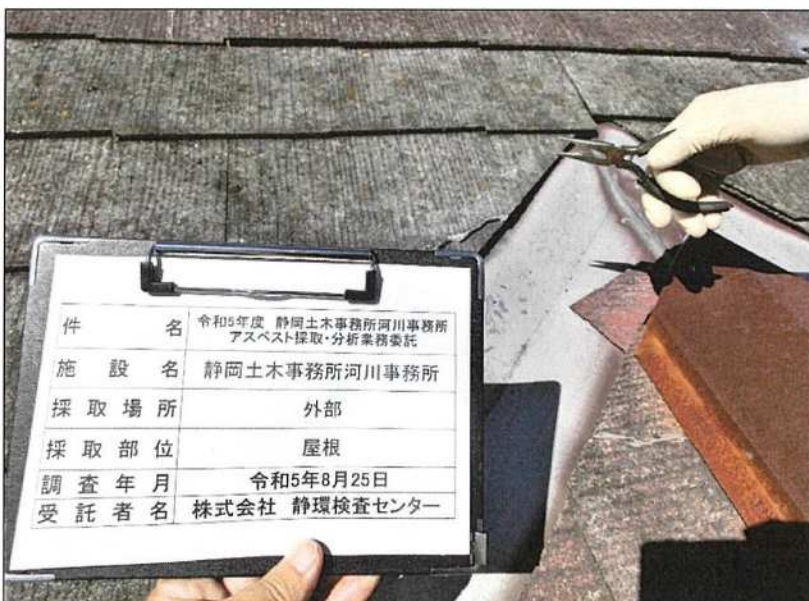 件名 令和5年度 静岡土木事務所河川事務所
アスベスト採取・分析業務委託
施設名 静岡土木事務所河川事務所
採取場所 外部
採取部位 屋根
調査年月 令和5年8月25日
受託者名 株式会社 静環検査センター